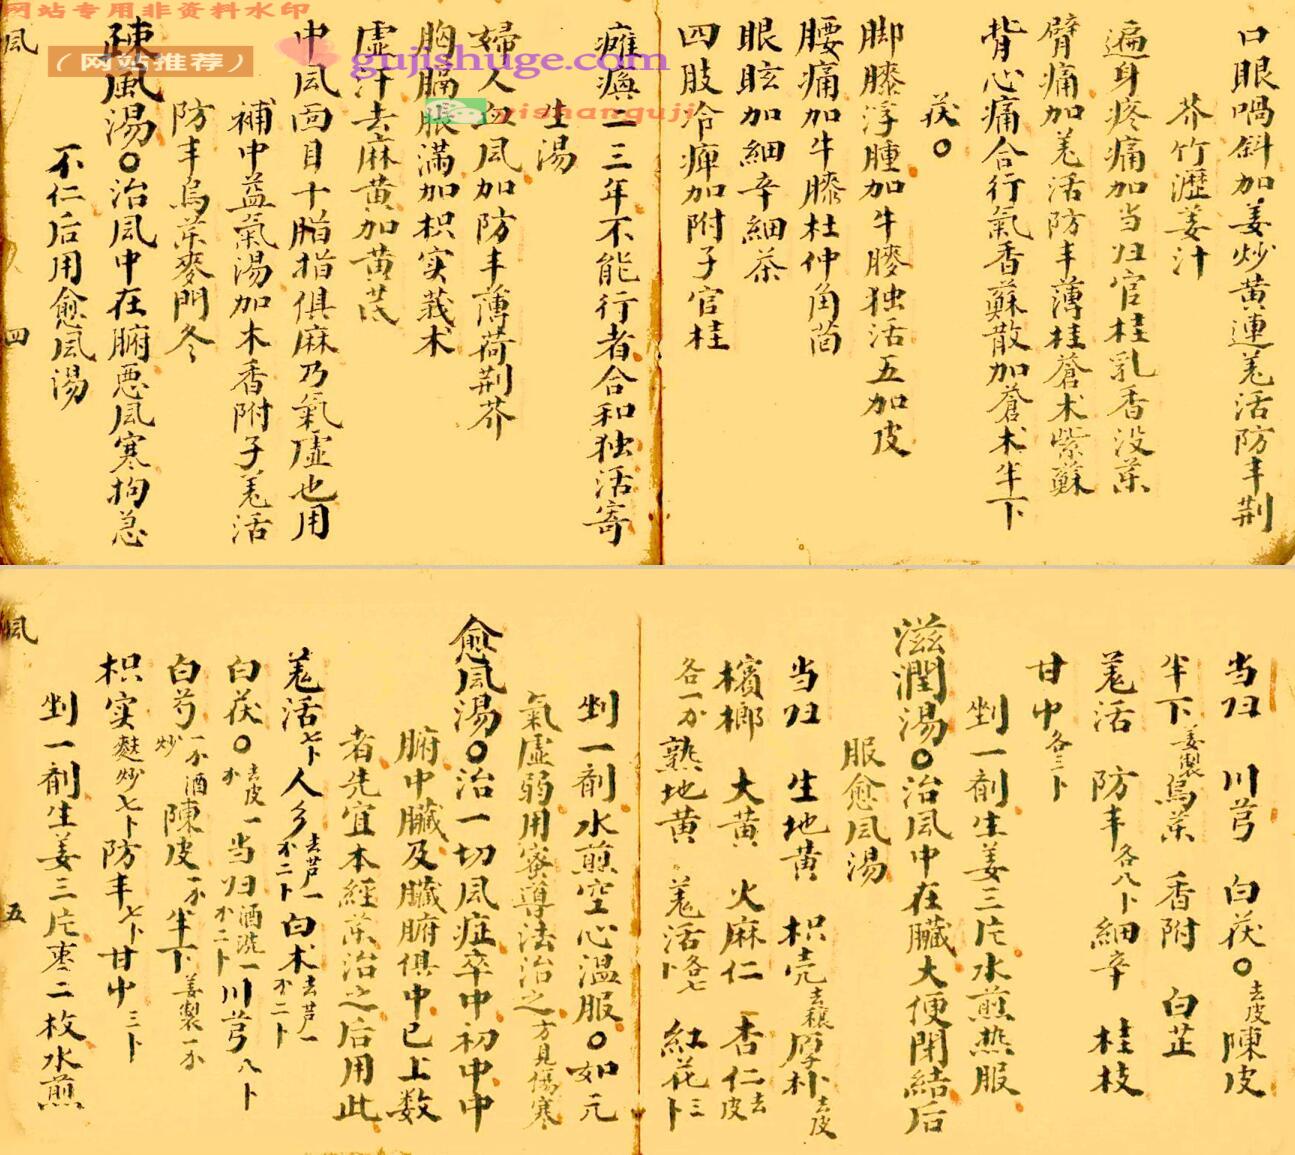 口眼喎斜加姜炒黄連羌活防丰荆
芥竹瀝姜汁
遍身疼痛加当归官桂乳香没茶
臂痛加羌活防丰薄桂蒼术紫蘇
背心痛合行氣香蘇散加蒼术半下
茯〇
脚膝浮腫加牛膝独活五加皮
腰痛加牛膝杜仲角茴
眼眩加細辛細茶
四肢冷痺加附子官桂
癱瘓一二三年不能行者合和独活寄
生湯
婦人血風加防丰薄荷荆芥
胸膈脹滿加枳实莪术
虚汗去麻黄加黄芪
中風面目十脂指俱麻乃氣虚也用
補中益氣湯加木香附子羌活
防丰烏茶麥門冬
疎風湯〇治風中在腑恶風寒拘急
不仁后用愈風湯
風
四
网站专用非资料水印
（网站推荐）
gujishuge.com
yishanguji
当归 川芎 白茯〇去皮陳皮
半下姜製烏茶 香附 白芷
羌活 防丰各八卜細辛 桂枝
甘中各三卜
剉一剤生姜三片水煎热服
滋潤湯〇治風中在臟大便閉結后
服愈風湯
当归 生地黄 枳壳去穰厚朴去皮
檳榔 大黄 火麻仁 杏仁去皮
各一分 熟地黄 羌活各七卜 紅花三卜
剉一剤水煎空心温服〇如元
氣虚弱用蜜導法治之方見傷寒
愈風湯〇治一切風症卒中初中中
腑中臟及臟腑俱中已上数
者先宜本經茶治之后用此
羌活七卜人參去芦一分二卜白术去芦一分二卜
白茯〇去皮一分当归酒洗一分二卜川芎八卜
白芍一分酒炒陳皮一分半下姜製一分
枳实麸炒七卜防丰七卜甘中三卜
剉一剤生姜三片枣二枚水煎
風
五